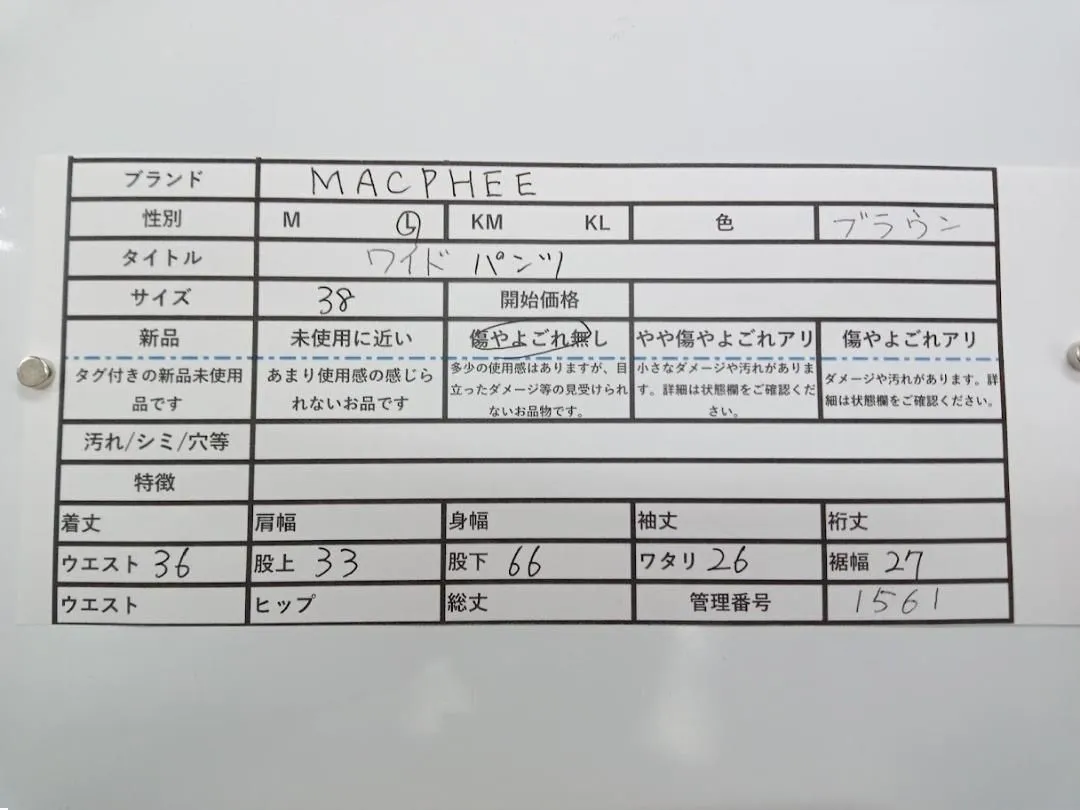 ブランド MACPHEE
性別 M L KM KL 色 ブラウン
タイトル ワイドパンツ
サイズ 38 開始価格
新品 未使用に近い 傷やよごれ無し やや傷やよごれアリ 傷やよごれアリ
タグ付きの新品未使用
品です
あまり使用感の感じら
れないお品です
多少の使用感はありますが、目
立ったダメージ等の見受けられ
ないお品物です。
小さなダメージや汚れがありま
す。詳細は状態欄をご確認くだ
さい。
ダメージや汚れがあります。詳
細は状態欄をご確認ください。
汚れ/シミ/穴等
特徴
着丈 肩幅 身幅 袖丈 裄丈
ウエスト 36 股上 33 股下 66 ワタリ 26 裾幅 27
ウエスト ヒップ 総丈 管理番号 1561